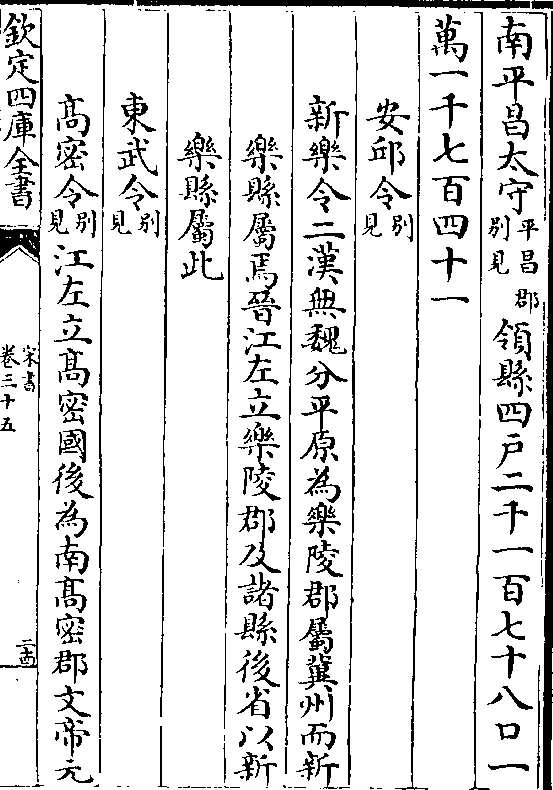 南平昌太守平昌郡别見領縣四戸二千一百七十八口一
萬一千七百四十一
安邱令别見
新樂令二漢無魏分平原為樂陵郡屬冀州而新
樂縣屬焉晉江左立樂陵郡及諸縣後省以新
樂縣屬此
東武令别見
髙密令别見江左立髙密國後為南髙密郡文帝元
欽定四庫全書
宋書
卷三十五
二十四